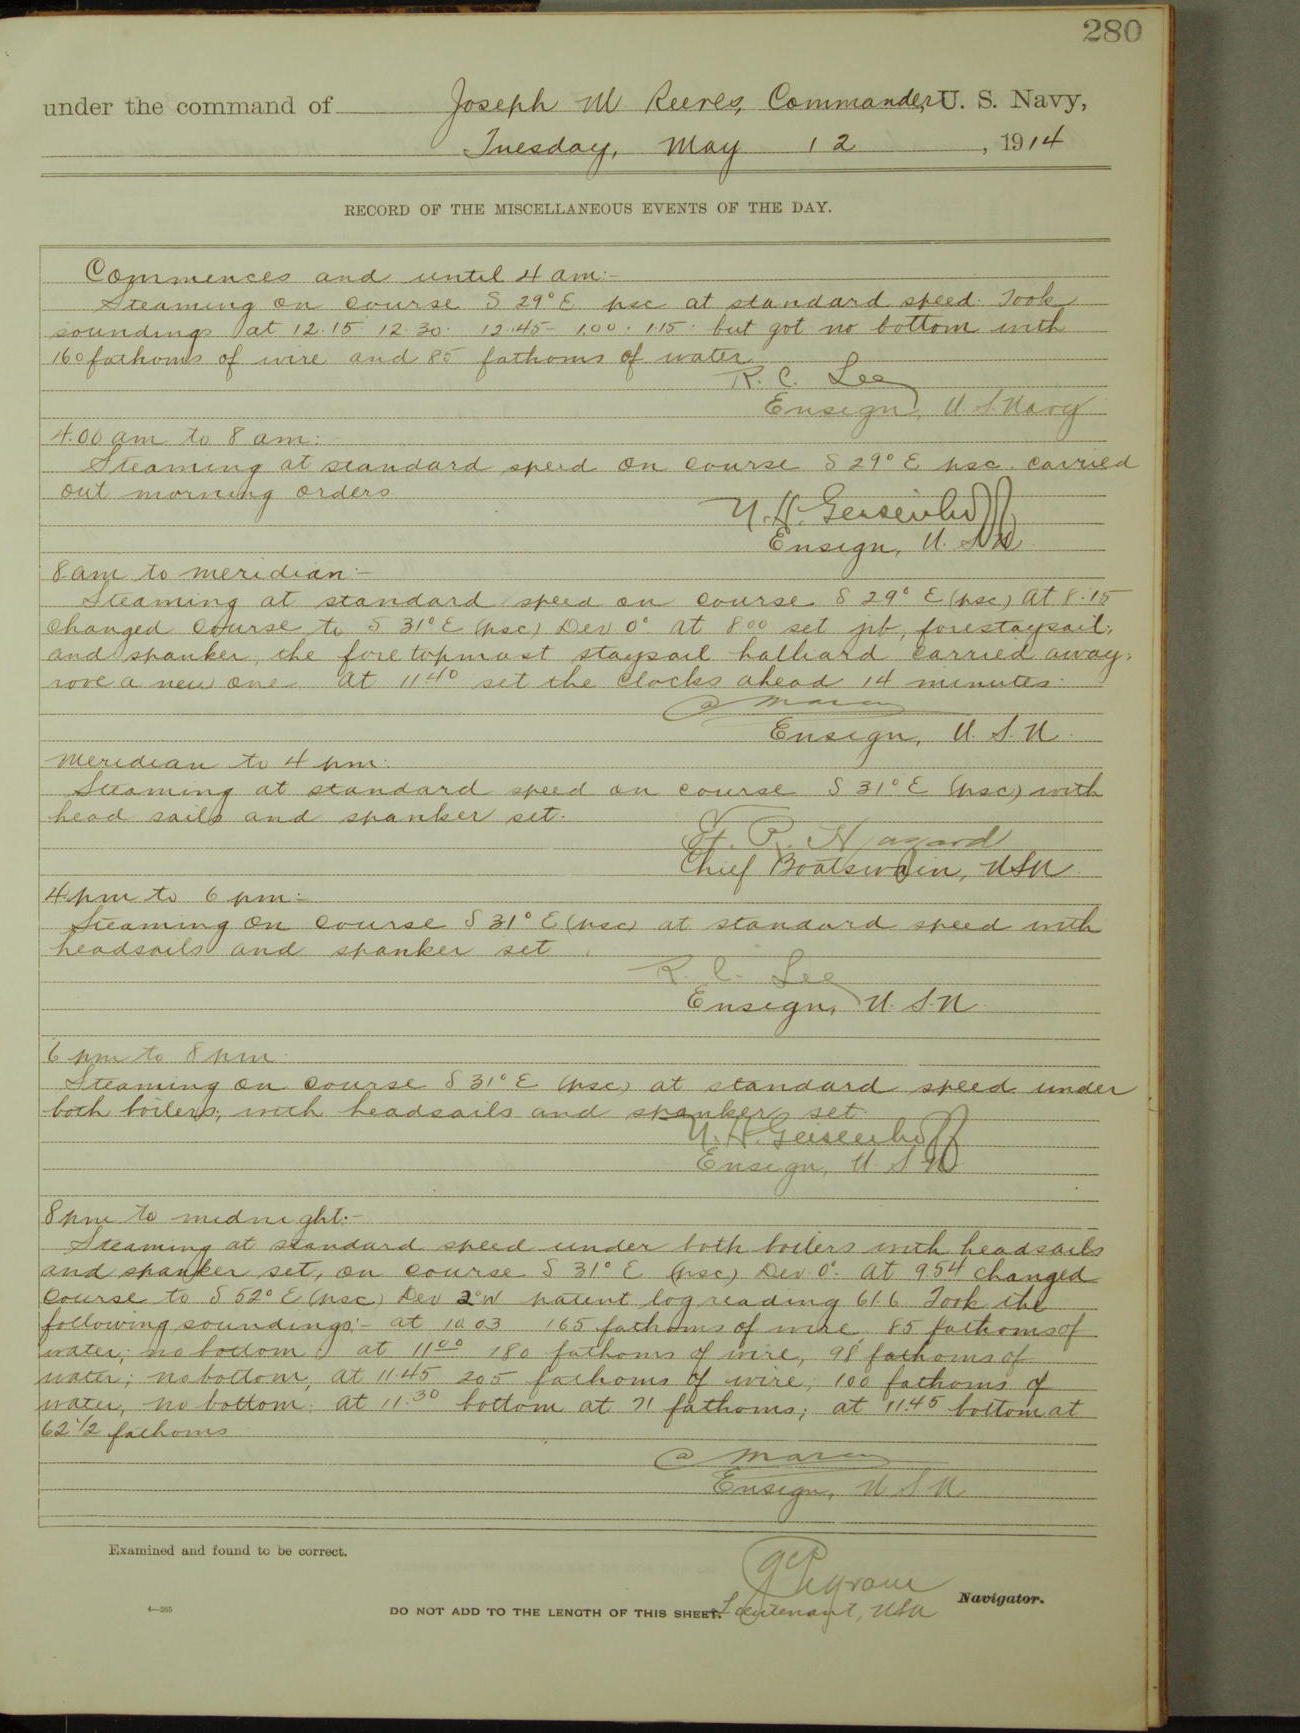 280
under the command of Joseph M Reeves, Commander, U. S. Navy,
Tuesday, May 12, 1914
RECORD OF THE MISCELLANEOUS EVENTS OF THE DAY.
Commences and until 4 am:-
Steaming on course S 29° E psc at standard speed. Took
soundings at 12.15 12.30. 12.45- 1.00. 1.15. but got no bottom with
160 fathoms of wire and 85 fathoms of water
R. C. Lee
Ensign, U.S. Navy
4.00 am to 8 am:
Steaming at standard speed on course S 29° E psc. carried
out morning orders
N. H. Geisenhoff
Ensign, U. S. N.
8 am to meridian:-
Steaming at standard speed on course S 29° E (psc) At 8.15
changed course to S 31° E (psc) Dev 0° At 8 00 set jib, forestaysail,
and spanker, the fore topmast staysail halliard carried away;
rove a new one. At 11 40 set the clocks ahead 14 minutes.
Ensign, U. S. N.
Meridian to 4 pm:
Steaming at standard speed on course S 31° E (psc) with
head sails and spanker set.
Chief Boatswain, USN
4 pm to 6 pm:-
Steaming on course S 31° E (psc) at standard speed with
headsails and spanker set.
R. C. Lee
Ensign, U. S. N.
6 pm to 8 pm
Steaming on course S 31° E (psc) at standard speed under
both boilers, with headsails and spanker set
N. H. Geisenhoff
Ensign, U. S. N.
8 pm to midnight:-
Steaming at standard speed under both boilers with headsails
and spanker set, on course S 31° E (psc) Dev 0°. At 9 54 changed
course to S 52° E (psc) Dev 2° W patent log reading 61.6 Took the
following soundings:- at 10 03 165 fathoms of wire, 85 fathoms of
water; no bottom; at 11 00 180 fathoms of wire, 98 fathoms of
water; no bottom, at 11.45 205 fathoms of wire, 100 fathoms of
water, no bottom; at 11.30 bottom at 71 fathoms; at 11.45 bottom at
62 1/2 fathoms
Ensign, U S N
Examined and found to be correct.
Navigator.
4—265
DO NOT ADD TO THE LENGTH OF THIS SHEET.
Lieutenant, USN